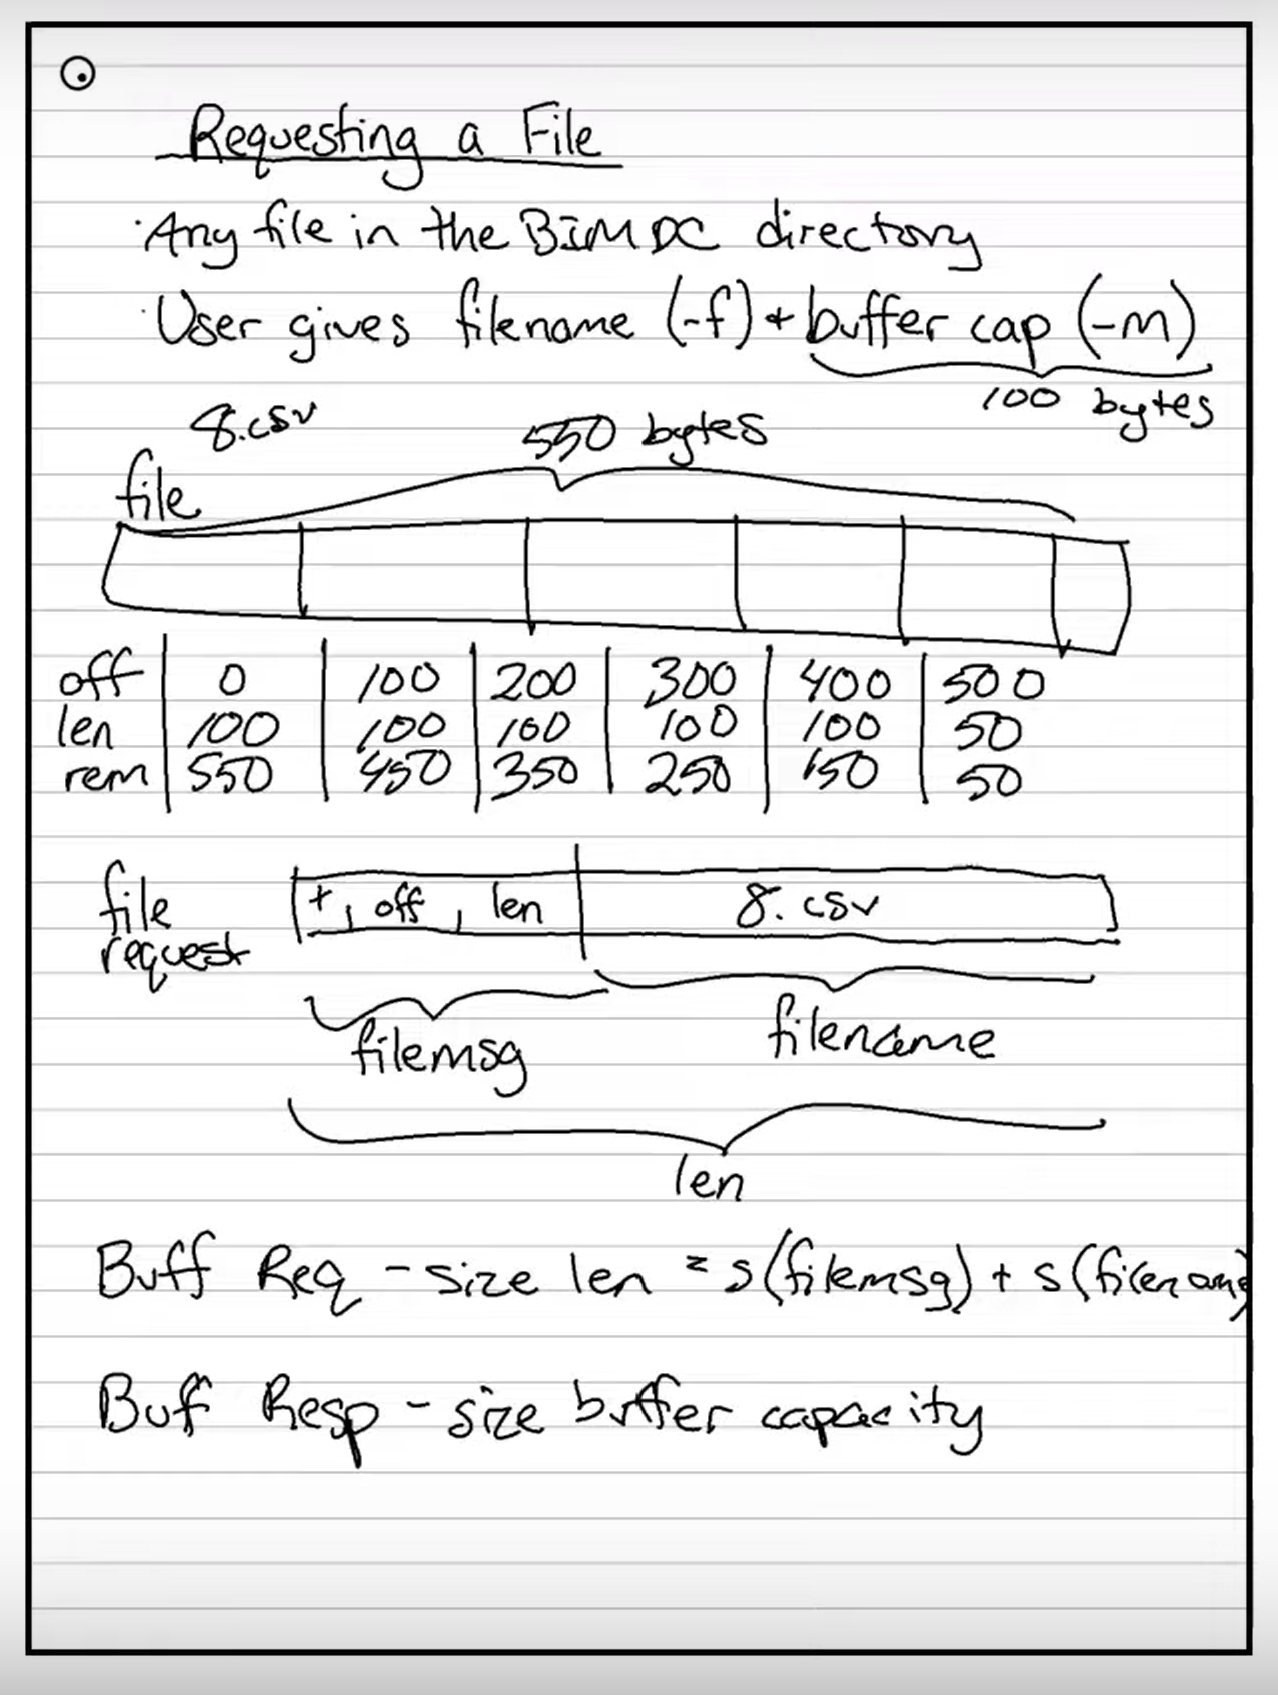 Requesting a File
· Any file in the BIMDC directory
· User gives filename (-f) + buffer cap (-m)
100 bytes
8.csv
550 bytes
file
off 0 100 200 300 400 500
len 100 100 100 100 100 50
rem 550 450 350 250 150 50
file request
t, off, len 8.csv
filemsg filename
len
Buff Req - size len = s(filemsg) + s(filename)
Buff Resp - size buffer capacity